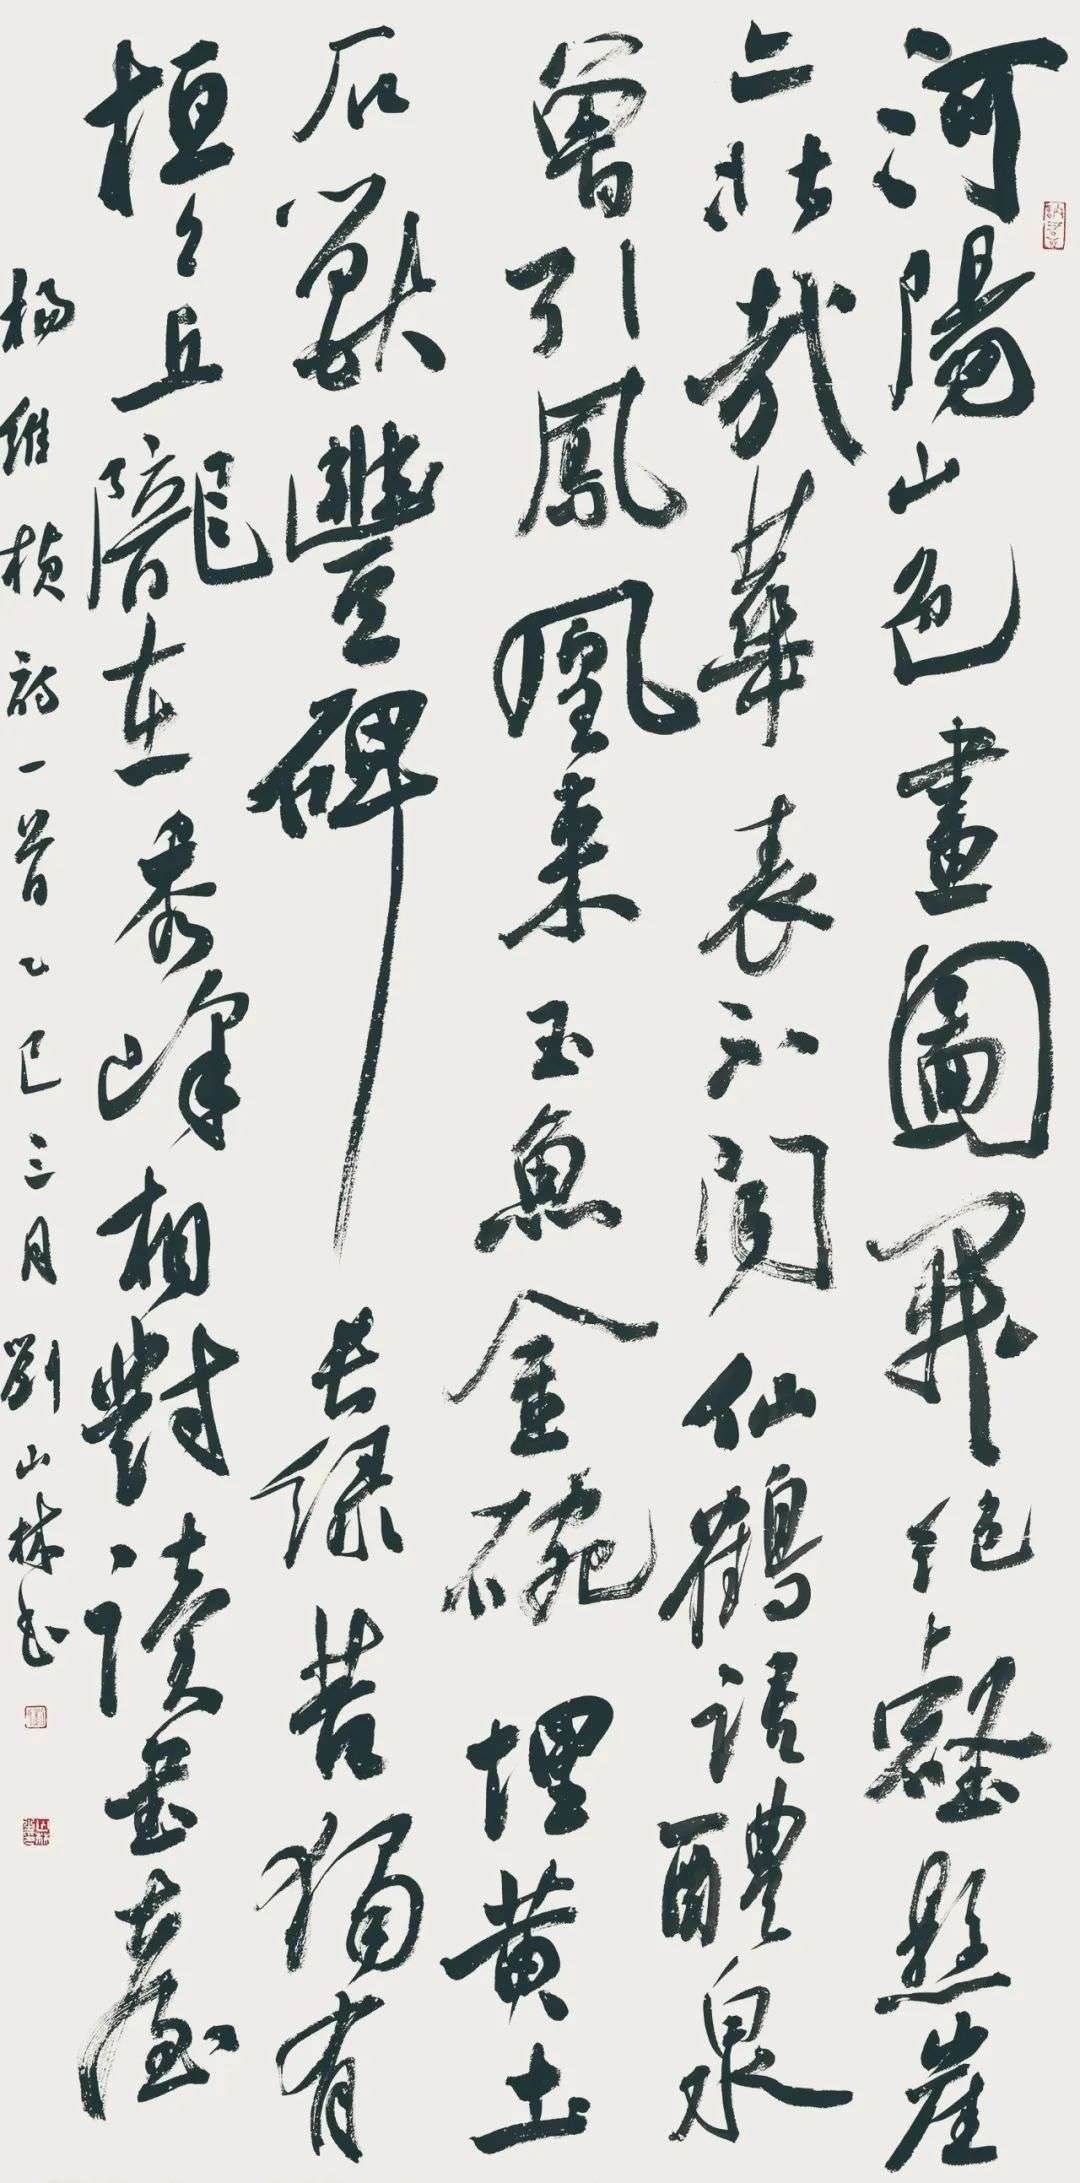 河陽山色畫圖開絕壑懸崖
亦壯哉華表不聞仙鶴語醴泉
曾引鳳凰來玉魚金碗埋黄土
石獸豐碑長綠苔獨有
桓々丘隴在秀峰相對讀書臺
楊維楨詩一首乙巳三月劉山林書